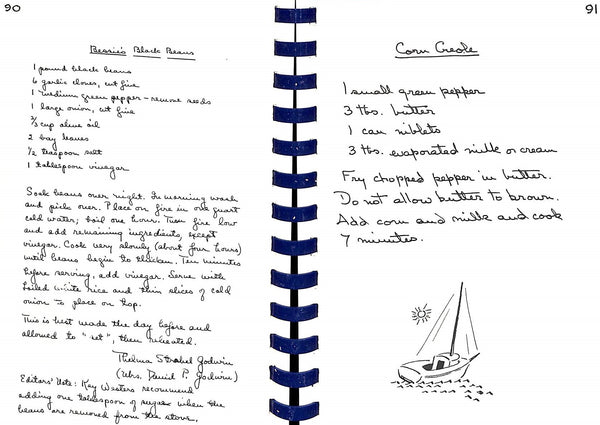 90
Bessie's Black Beans
1 pound black beans
6 garlic cloves, cut fine
1 medium green pepper - remove seeds
1 large onion, cut fine
⅔ cup olive oil
2 bay leaves
½ teaspoon salt
1 tablespoon vinegar
Soak beans over night. In morning wash
and pick over. Place on fire in one quart
cold water; boil one hour. Turn fire low
and add remaining ingredients, except
vinegar. Cook very slowly (about four hours)
until beans begin to thicken. Ten minutes
before serving, add vinegar. Serve with
boiled white rice and thin slices of cold
onion to place on top.
This is best made the day before and
allowed to "set", then reheated.
Thelma Strabel Godwin
(Mrs. David P. Godwin)
Editors' Note: Key Westers recommend
adding one tablespoon of sugar when the
beans are removed from the stove.
91
Corn Creole
1 small green pepper
3 tbs. butter
1 can niblets
3 tbs. evaporated milk or cream
Fry chopped pepper in butter.
Do not allow butter to brown.
Add corn and milk and cook
7 minutes.